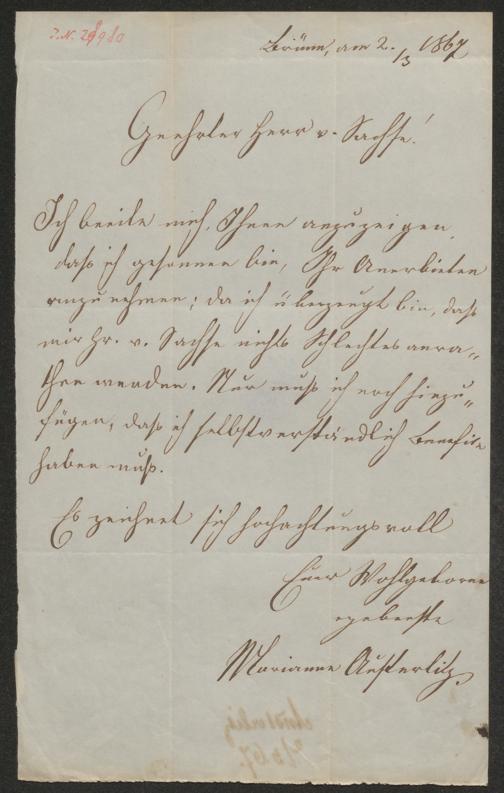 J. N. 26980
Brünn, am 2./3 1867
Geehrter Herr v. Sachse!
Ich beeile mich, Ihnen anzuzeigen,
daß ich gesonnen bin, Ihr Anerbieten
anzunehmen; da ich überzeugt bin, daß
mir Hr. v. Sachse nichts Schlechtes anra„
then werden. Nur muß ich noch hinzu„
fügen, daß ich selbstverständlich Benefice
haben muß.
Es zeichnet sich hochachtungsvoll
Euer Wohlgeboren
ergebenste
Marianne Austerlitz.